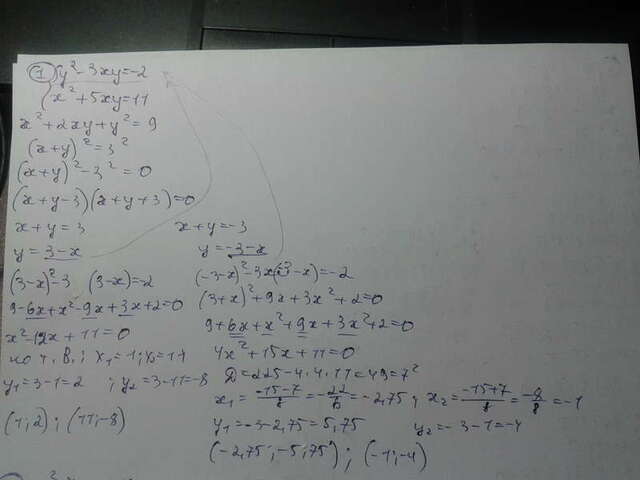 ① { y² - 3xy = -2
x² + 5xy = 11
x² + 2xy + y² = 9
(x+y)² = 3²
(x+y)² - 3² = 0
(x+y-3)(x+y+3)=0
x+y=3 x+y=-3
y=3-x y=-3-x
(3-x)²-3 (3-x)=-2 (-3-x)²-3x(-3-x)=-2
9-6x+x²-9x+3x+2=0 (3+x)²+9x+3x²+2=0
x²-12x+11=0 9+6x+x²+9x+3x²+2=0
по т. В.; x₁=1; x₂=11 4x²+15x+11=0
y₁=3-1=2 ; y₂=3-11=-8 D=225-4·4·11=49=7²
x₁=(-15-7)/8=-22/8=-2,75; x₂=(-15+7)/8=-8/8=-1
(1;2); (11;-8) y₁=-3-2,75=5,75 y₂=-3-1=-4
(-2,75;-5,75); (-1;-4)